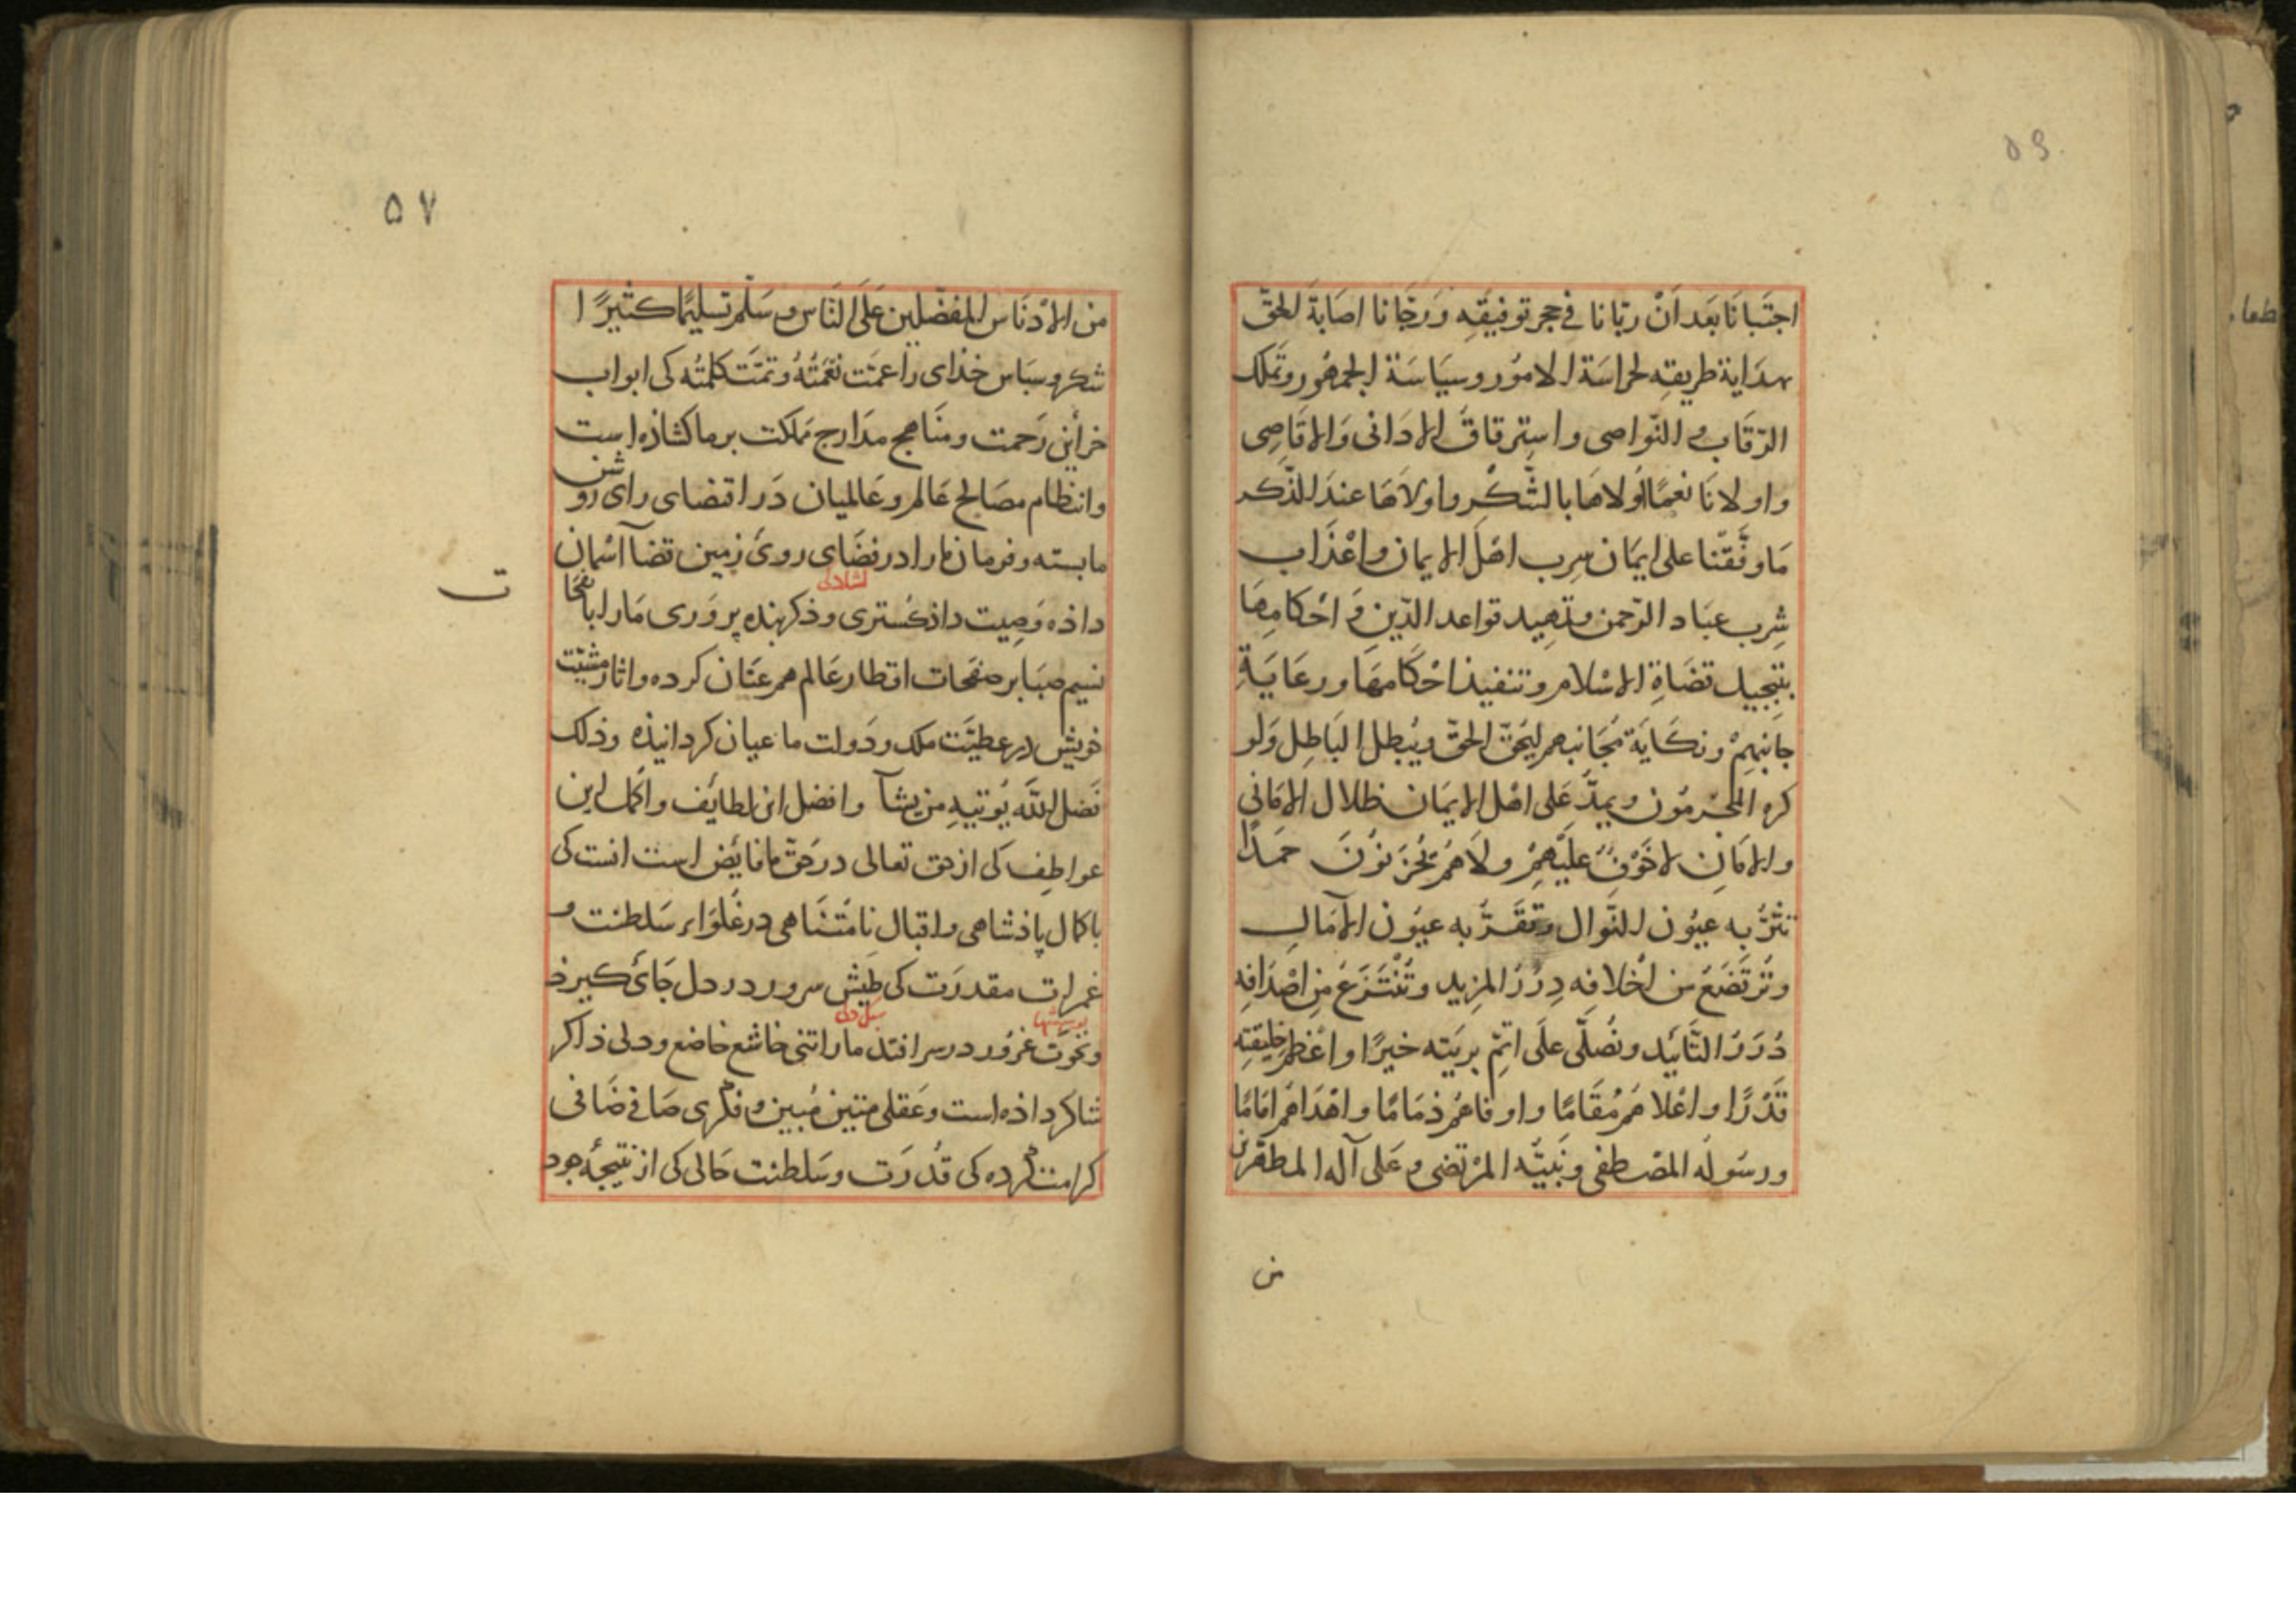 ۵۶
اجتَبانَا بَعد اَنْ ربّانا فی حجر توفیقِه وَرجّانا اصابةَ الحَقّ
بهدَایة طریقِه لحراسَة الامُور وسیَاسَة الجمهُور وتَملک
الرّقَاب والنّواصی واسترقاق الادَانی وَالاقَاصِی
واولانَا نعمًا اَولاهَا بالشُکر واولاهَا عندَ الذّکر
مَا وفّقنا علی ایمَان سِرب اهْل الایمان واعْذَاب
شِرب عبَاد الرّحمن وتمهید قواعد الدّین وَ احْکامِهَا
بتبجیل قضَاةِ الاسْلام وتنفیذ احْکامهَا ورعَایَةِ
جانبهِمْ ونکَایَة مُجَانبهم لیُحَقّ الحقّ ویُبطل البَاطِل وَلو
کره المجْرمُون ویمدّ عَلی اهْل الایمَان ظلال الامَانی
والامَانِ لاخَوْفٌ عَلَیْهِمْ ولَا هُمْ یُحْزَنوُنَ حَمدًا
تثرُّ به عیُون النّوال وتقَرّ به عیُون الآمَال
وتَرتَضعُ من اخْلافِه دِرَرُ المزید وتُنْتَزَعُ مِن اصْدَافِهِ
دُرَرُ التّایید ونُصَلّی علَی اتمّ بریّته خیرًا واعْظم خلیقتِه
قَدْرًا واعْلاهُم مُقَامًا واوفاهُم ذمَامًا واهْدَاهُم امَامًا
ورسَولُه المصْطفی ونَبیّه المرْتضی وعَلی آله المطهّرین
من
۵۷
من الادْنَاس المفضّلین عَلَی النَاس وسَلّم تسلیمًا کثیرًا
شکر وسپَاس خذای را عمّت نعمَتُهُ وتمّت کلمتُه کی ابواب
خزاین رَحمت ومنَاهج مدَارج مملکت بر ما کشاذه است
وانتظام مصَالح عَالم وعَالمیان دَر اقتضای رای روشن
ما بسته وفرمان ما را در فضَای رویُ زمین قضا آسمان
داذه وَصِیت داذکُستری وذکر بنده پروَری مَا را با نفحات
نسیم صبَا بر صفحَات اقطار عَالم هم عنَان کرده واثار مشیّت
خویش در عطیّت ملک ودَولت ما عیان کردانیذه وذلک
فَضل اللّه یُوتیهِ من یشآ وافضل این لطایف واکمل این
عواطِف کی از حق تعالی در حَقّ ما فایض است انست کی
با کمال پاذشاهی واقبال نامُتنَاهی در غُلَوَاء سَلطنت و
غمرات مقدرَت کی طیش سرور در دل جَایُ کیرذ
ونخوَت غرُور در سر افتذ ما را تنی خاشع خاضع ودلی ذاکر
شاکر داذه است وعَقلی متین مُبین وفکری صَافی ضَافی
کرامت کرده کی قُدرَت وسَلطنت حَالی کی از نتیجهُ جود